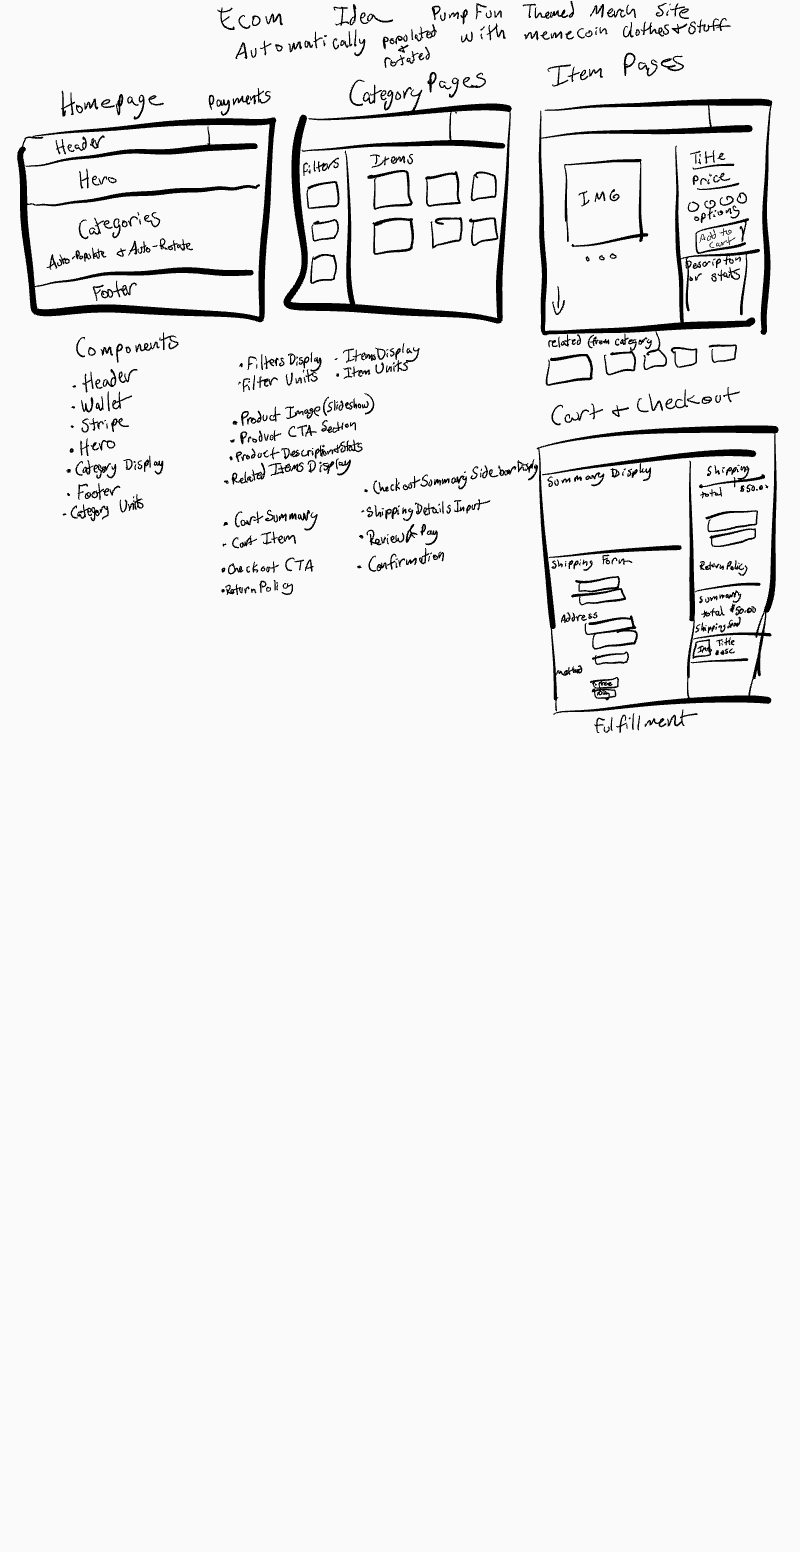 Ecom Idea PumpFun Themed Merch Site
Automatically populated & rotated with memecoin clothes & stuff
Homepage
Payments
Header
Hero
Categories
Auto-Populate & Auto-Rotate
Footer
Category Pages
Filters
Items
Item Pages
IMG
Title
Price
options
Add to cart
Description or stats
related (from category)
Components
• Header
• Wallet
• Stripe
• Hero
• Category Display
• Footer
• Category Units
• Filters Display
• Filter Units
• Items Display
• Item Units
• Product Image (Slideshow)
• Product CTA Section
• Product Description & Stats
• Related Items Display
• Cart Summary
• Cart Item
• Checkout CTA
• Return Policy
• Checkout Summary Sidebar Display
• Shipping Details Input
• Review & Pay
• Confirmation
Cart & Checkout
Summary Display
Shipping
total $50.00
Return Policy
Shipping Form
Address
Method
Summary
total $50.00
Img
Title
Desc
Fulfillment